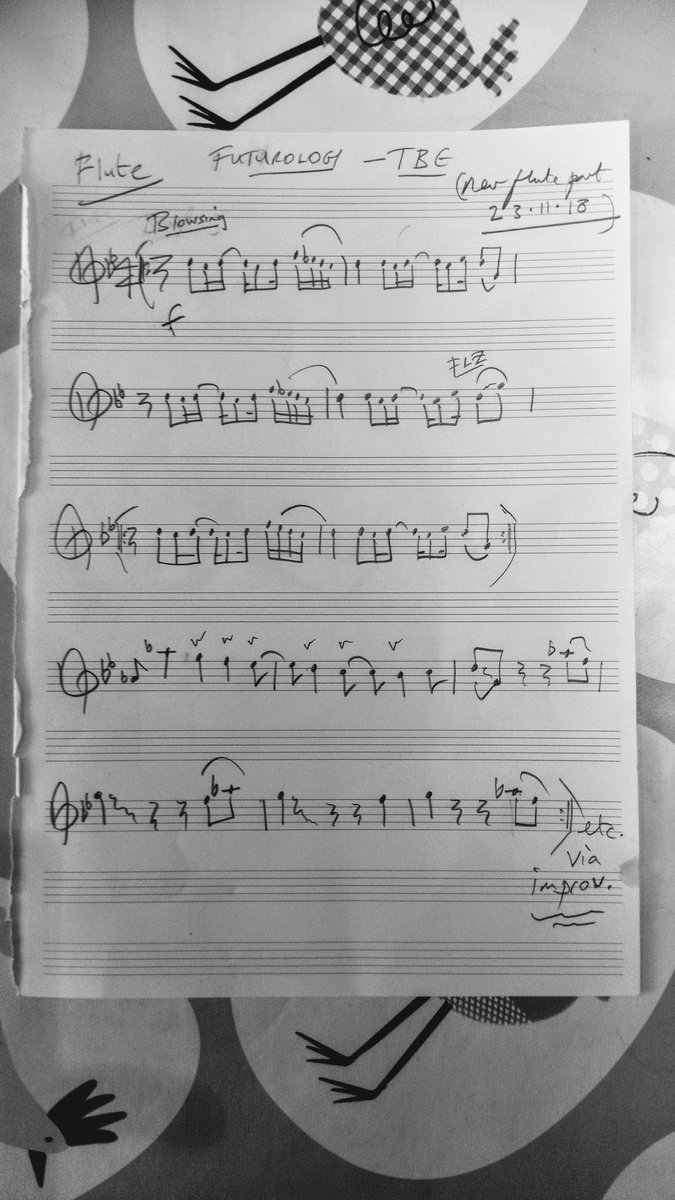 Flute
FUTUROLOGY - TBE
(new flute part
23.11.18)
Blowsing
f
FLZ
etc.
via
improv.